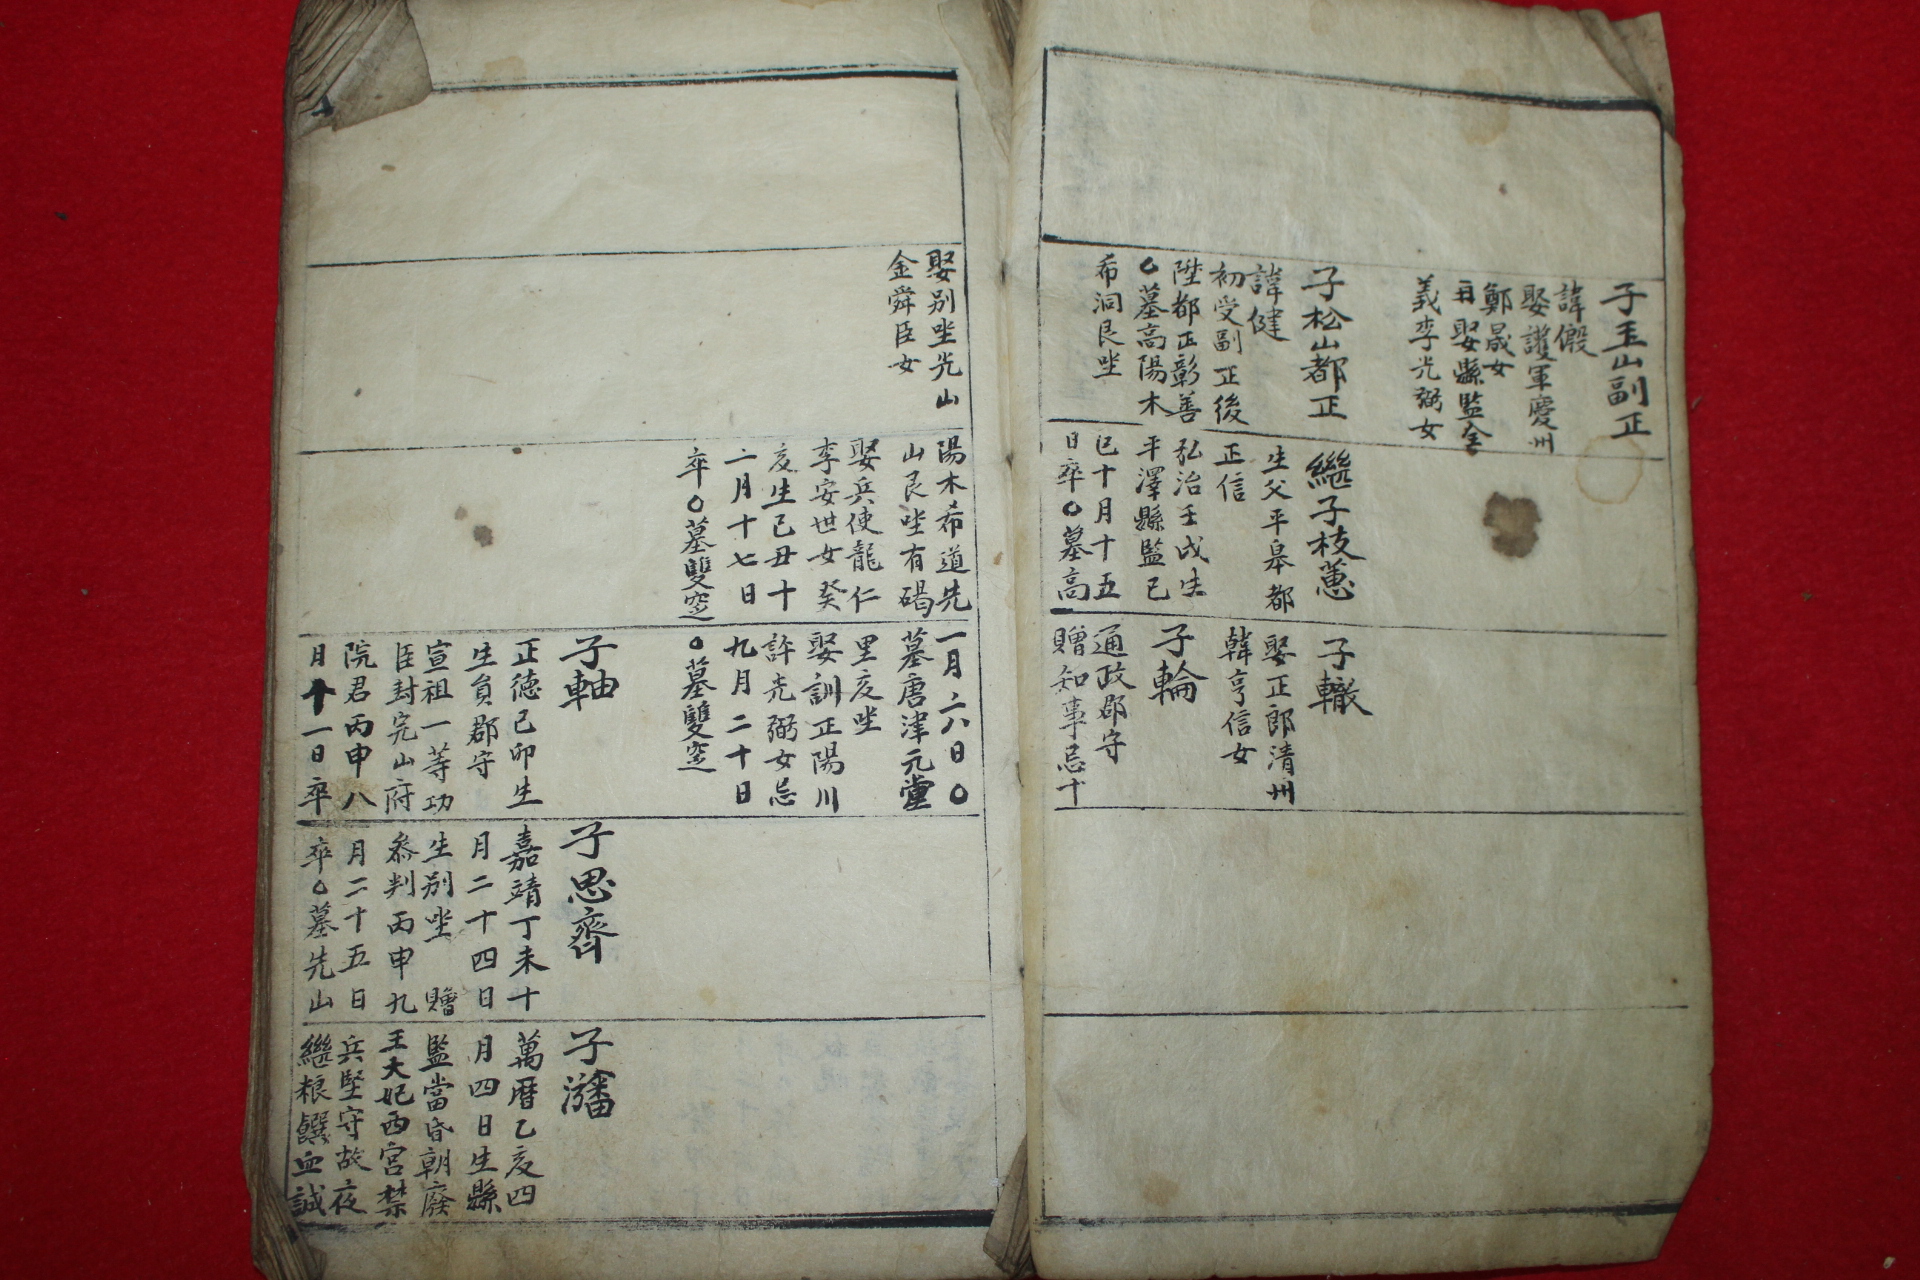 子玉山副正
諱假
娶護軍慶州
鄭晟女
再娶縣監全
義李光弼女
子松山都正
諱健
初受副正後
陞都正彰善
○墓高陽木
希洞艮坐
繼子枝蕙
生父平皋都
正信
弘治壬戌生
平澤縣監己
巳十月十五
日卒○墓高
子轍
娶正郎清州
韓亨信女
子輪
通政郡守
贈知事忌十
娶別坐光山
金舜臣女
陽木希道先
山艮坐有碣
娶兵使龍仁
李安世女癸
亥生己丑十
二月十七日
卒○墓雙窆
一月二八日○
墓唐津元堂
里亥坐
娶訓正陽川
許光弼女忌
九月二十日
○墓雙窆
子軸
正德己卯生
生員郡守
宣祖一等功
臣封完山府
院君丙申八
月十一日卒
子思齊
嘉靖丁未十
月二十四日
生別坐 贈
叅判丙申九
月二十五日
卒○墓先山
子瀋
萬曆乙亥四
月四日生縣
監當昏朝廢
王大妃西宮禁
兵堅守故夜
繼粮饌血誠